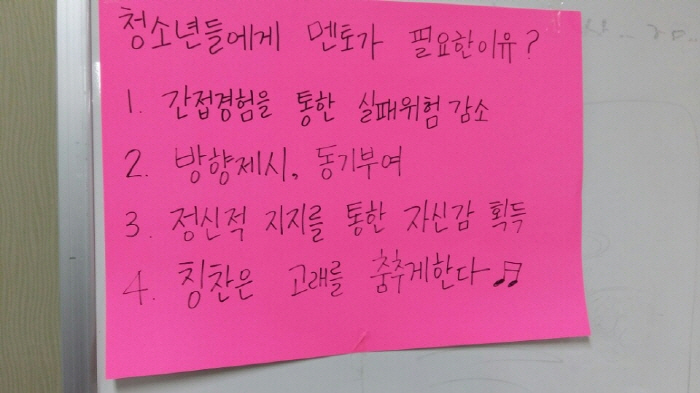 청소년들에게 멘토가 필요한이유?
1. 간접경험을 통한 실패위험 감소
2. 방향제시, 동기부여
3. 정신적 지지를 통한 자신감 획득
4. 칭찬은 고래를 춤추게한다♫